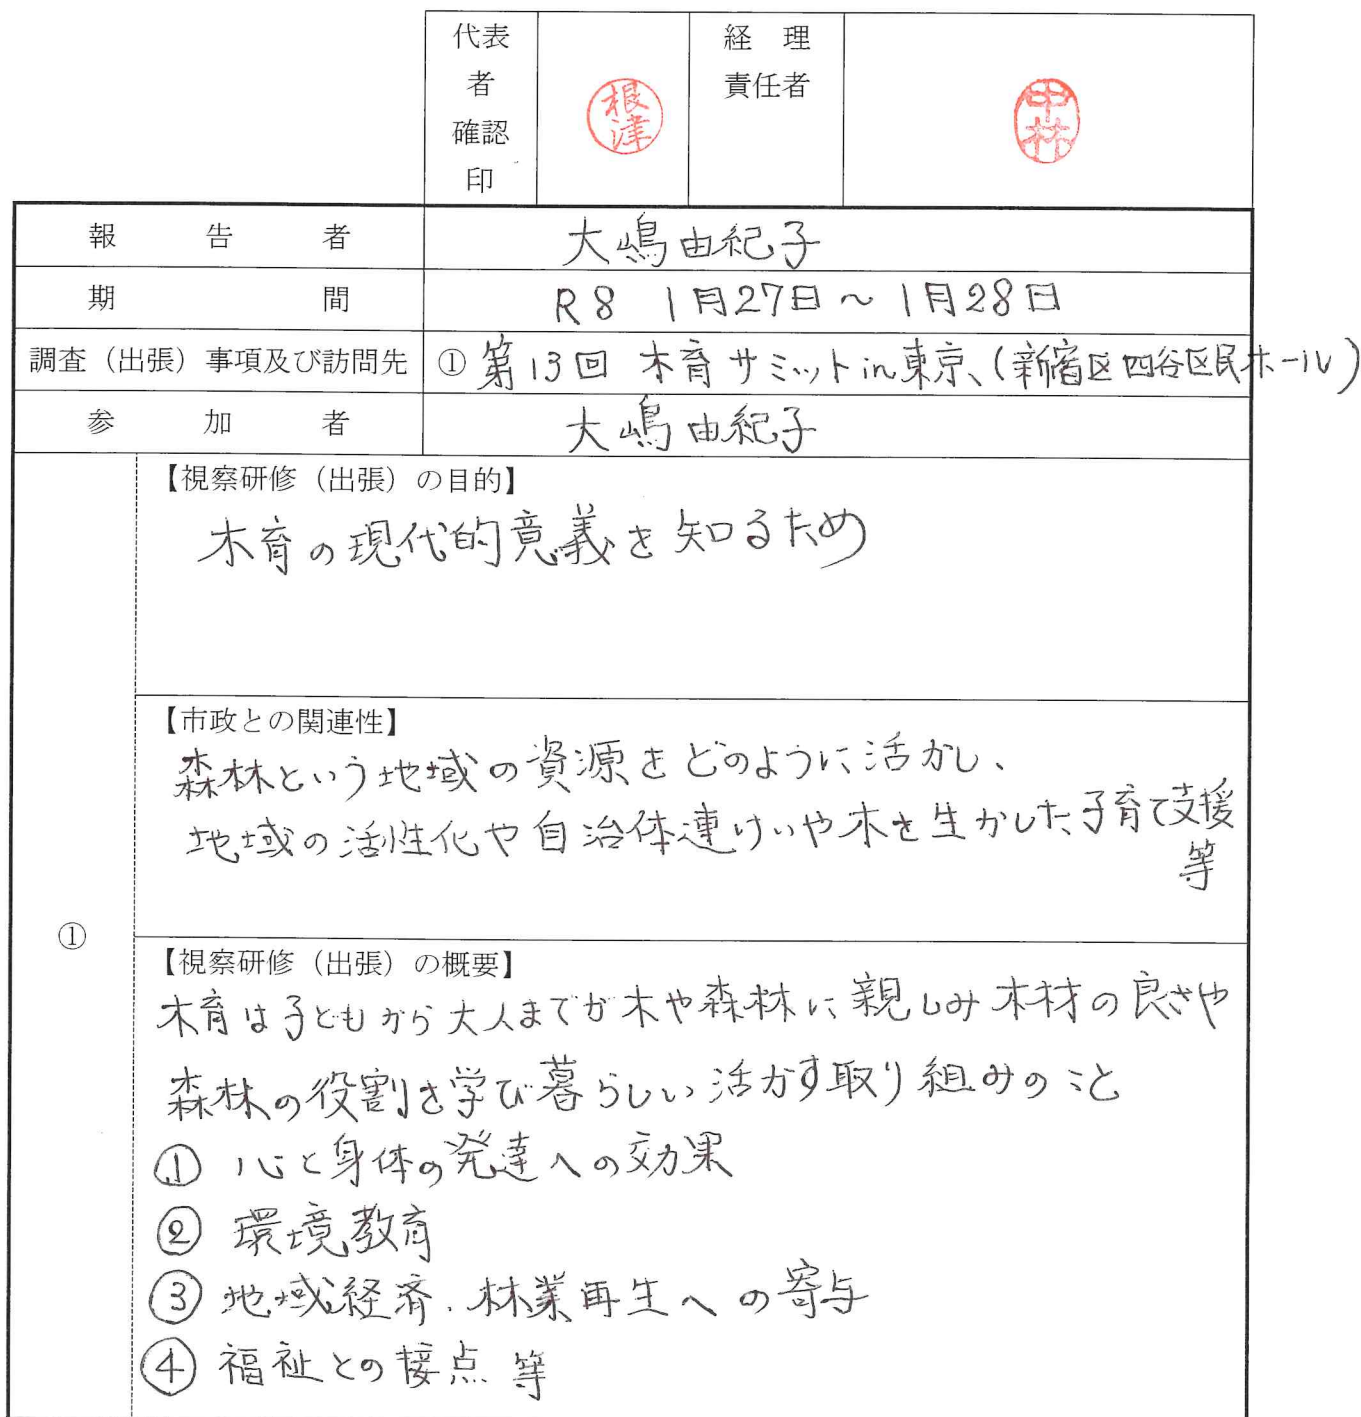 代表
者
確認
印
根津
経 理
責任者
中林
報 告 者
大嶋由紀子
期 間
R8 1月27日～1月28日
調査（出張）事項及び訪問先
①第13回 木育サミットin東京、(新宿区四谷区民ホール)
参 加 者
大嶋由紀子
①
【視察研修（出張）の目的】
木育の現代的意義を知るため
【市政との関連性】
森林という地域の資源をどのように活かし、
地域の活性化や自治体連けいや木を生かした子育て支援
等
【視察研修（出張）の概要】
木育は子どもから大人までが木や森林に親しみ木材の良さや
森林の役割を学び暮らしに活かす取り組みのこと
① 心と身体の発達への効果
② 環境教育
③ 地域経済．林業再生への寄与
④ 福祉との接点 等